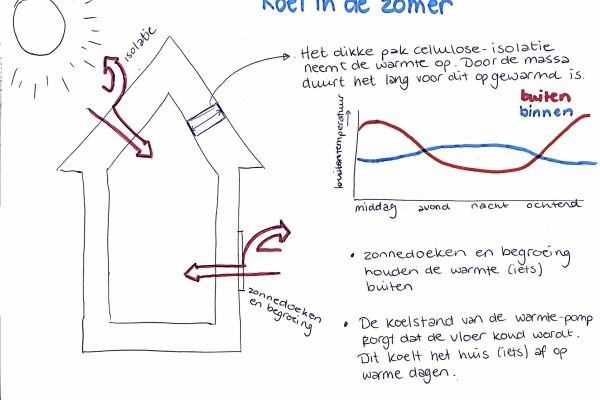 Koel in de zomer
isolatie
Het dikke pak cellulose-isolatie
neemt de warmte op. Door de massa
duurt het lang voor dit opgewarmd is.
buiten
binnen
buitentemperatuur
middag avond nacht ochtend
• zonnedoeken en begroeing
houden de warmte (iets)
buiten
zonnedoeken
en begroeing
• De koelstand van de warmte-pomp
zorgt dat de vloer koud wordt.
Dit koelt het huis (iets) af op
warme dagen.